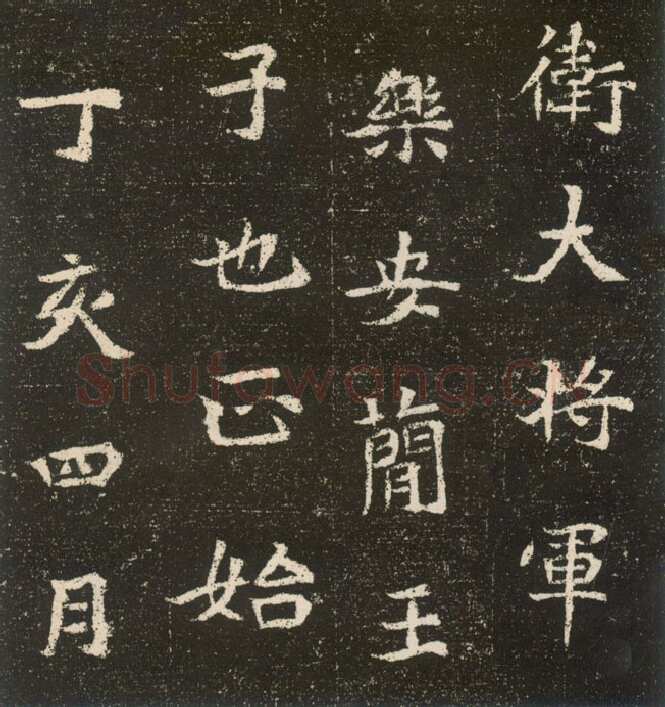 衛大將軍
樂安蕳王
子也正始
丁亥四月
Shufawang.cn